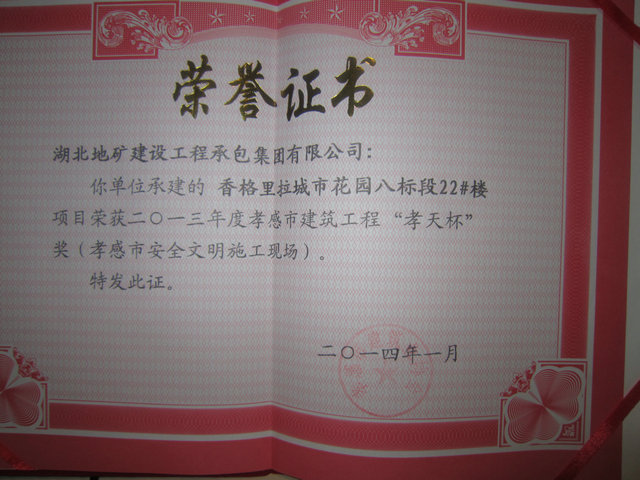 荣誉证书
湖北地矿建设工程承包集团有限公司：
你单位承建的 香格里拉城市花园八标段22#楼
项目荣获二〇一三年度孝感市建筑工程“孝天杯”
奖（孝感市安全文明施工现场）。
特发此证。
二〇一四年一月